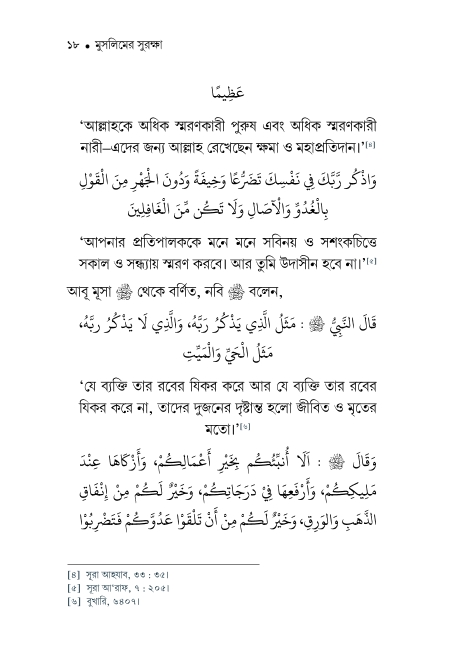 ১৮ ● মুসলিমের সুরক্ষা
عَظِيمًا
‘আল্লাহকে অধিক স্মরণকারী পুরুষ এবং অধিক স্মরণকারী
নারী—এদের জন্য আল্লাহ রেখেছেন ক্ষমা ও মহাপ্রতিদান।’[৪]
وَاذْكُر رَّبَّكَ فِي نَفْسِكَ تَضَرُّعًا وَخِيفَةً وَدُونَ الْجَهْرِ مِنَ الْقَوْلِ
بِالْغُدُوِّ وَالْآصَالِ وَلَا تَكُن مِّنَ الْغَافِلِينَ
‘আপনার প্রতিপালককে মনে মনে সবিনয় ও সশংকচিত্তে
সকাল ও সন্ধ্যায় স্মরণ করবে। আর তুমি উদাসীন হবে না।’[৫]
আবূ মূসা ﷺ থেকে বর্ণিত, নবি ﷺ বলেন,
قَالَ النَّبِيُّ ﷺ : مَثَلُ الَّذِي يَذْكُرُ رَبَّهُ، وَالَّذِي لَا يَذْكُرُ رَبَّهُ،
مَثَلُ الْحَيِّ وَالْمَيِّتِ
‘যে ব্যক্তি তার রবের যিকর করে আর যে ব্যক্তি তার রবের
যিকর করে না, তাদের দুজনের দৃষ্টান্ত হলো জীবিত ও মৃতের
মতো।’[৬]
وَقَالَ ﷺ : اَلَا أُنَبِّئُكُم بِخَيْرِ أَعْمَالِكُمْ، وَأَزْكَاهَا عِنْدَ
مَلِيكِكُمْ، وَأَرْفَعِهَا فِيْ دَرَجَاتِكُمْ، وَخَيْرٌ لَكُمْ مِنْ إِنْفَاقِ
الذَّهَبِ وَالوَرِقِ، وَخَيْرٌ لَكُمْ مِنْ أَنْ تَلْقَوْا عَدُوَّكُمْ فَتَضْرِبُوْا
[৪] সূরা আহযাব, ৩৩ : ৩৫।
[৫] সূরা আ’রাফ, ৭ : ২০৫।
[৬] বুখারি, ৬৪০৭।